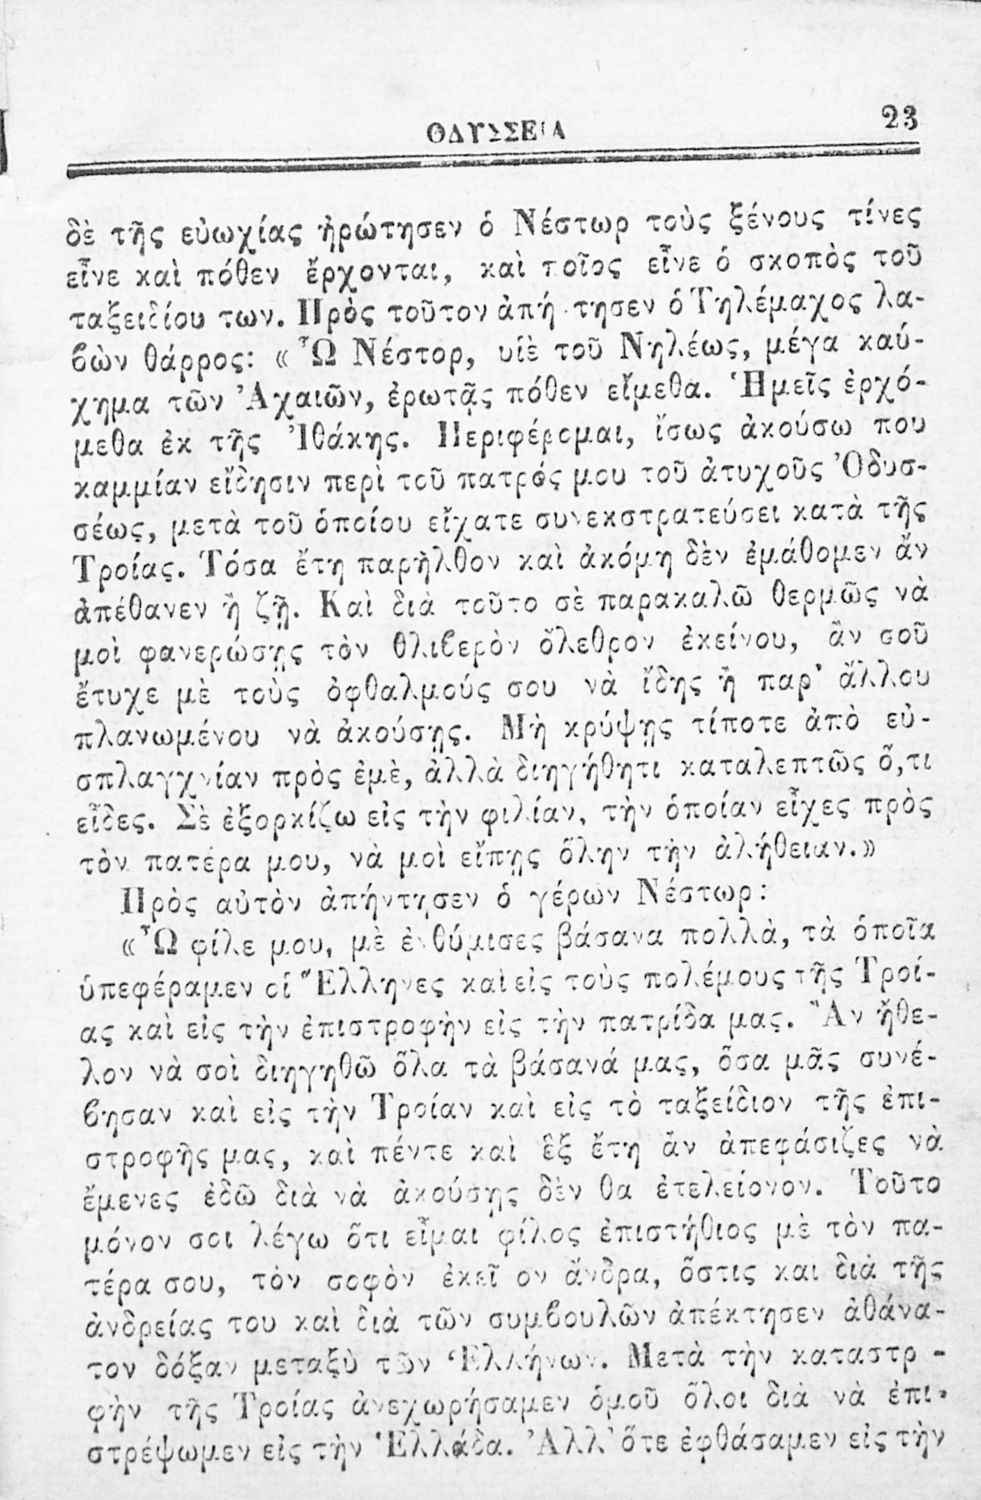 ΟΔΥΣΣΕΙΑ 23
δὲ τῆς εὐωχίας ἠρώτησεν ὁ Νέστωρ τοὺς ξένους τίνες
εἶνε καὶ πόθεν ἔρχονται, καὶ ποῖος εἶνε ὁ σκοπὸς τοῦ
ταξειδίου των. Πρὸς τοῦτον ἀπήντησεν ὁ Τηλέμαχος λα-
βὼν θάρρος: « Ὦ Νέστορ, υἱὲ τοῦ Νηλέως, μέγα καύ-
χημα τῶν Ἀχαιῶν, ἐρωτᾷς πόθεν εἴμεθα. Ἡμεῖς ἐρχό-
μεθα ἐκ τῆς Ἰθάκης. Περιφέρομαι, ἴσως ἀκούσω που
καμμίαν εἴδησιν περὶ τοῦ πατρός μου τοῦ ἀτυχοῦς Ὀδυσ-
σέως, μετὰ τοῦ ὁποίου εἴχατε συνεκστρατεύσει κατὰ τῆς
Τροίας. Τόσα ἔτη παρῆλθον καὶ ἀκόμη δὲν ἐμάθομεν ἄν
ἀπέθανεν ἢ ζῇ. Καὶ διὰ τοῦτο σὲ παρακαλῶ θερμῶς νὰ
μοὶ φανερώσῃς τὸν θλιβερὸν ὄλεθρον ἐκείνου, ἂν σοῦ
ἔτυχε μὲ τοὺς ὀφθαλμούς σου νὰ ἴδῃς ἢ παρ' ἄλλου
πλανωμένου νὰ ἀκούσῃς. Μὴ κρύψῃς τίποτε ἀπὸ εὐ-
σπλαγχνίαν πρὸς ἐμὲ, ἀλλὰ διηγήθητι καταλεπτῶς ὅ,τι
εἶδες. Σὲ ἐξορκίζω εἰς τὴν φιλίαν, τὴν ὁποίαν εἶχες πρὸς
τὸν πατέρα μου, νὰ μοὶ εἴπῃς ὅλην τὴν ἀλήθειαν.»
Πρὸς αὐτὸν ἀπήντησεν ὁ γέρων Νέστωρ:
« Ὦ φίλε μου, μὲ ἐνθύμισες βάσανα πολλὰ, τὰ ὁποῖα
ὑπεφέραμεν οἱ Ἕλληνες καὶ εἰς τοὺς πολέμους τῆς Τροί-
ας καὶ εἰς τὴν ἐπιστροφὴν εἰς τὴν πατρίδα μας. Ἂν ἤθε-
λον νὰ σοὶ διηγηθῶ ὅλα τὰ βάσανά μας, ὅσα μᾶς συνέ-
βησαν καὶ εἰς τὴν Τροίαν καὶ εἰς τὸ ταξείδιον τῆς ἐπι-
στροφῆς μας, καὶ πέντε καὶ ἓξ ἔτη ἄν ἀπεφάσιζες νὰ
ἔμενες ἐδῶ διὰ νὰ ἀκούσῃς δὲν θα ἐτελείονον. Τοῦτο
μόνον σοι λέγω ὅτι εἶμαι φίλος ἐπιστήθιος μὲ τὸν πα-
τέρα σου, τὸν σοφὸν ἐκεῖνον ἄνδρα, ὅστις και διὰ τῆς
ἀνδρείας του καὶ διὰ τῶν συμβουλῶν ἀπέκτησεν ἀθάνα-
τον δόξαν μεταξὺ τῶν Ἑλλήνων. Μετὰ τὴν καταστρ -
φὴν τῆς Τροίας ἀνεχωρήσαμεν ὁμοῦ ὅλοι διὰ νὰ ἐπι-
στρέψωμεν εἰς τὴν Ἑλλάδα. Ἀλλ' ὅτε ἐφθάσαμεν εἰς τὴν